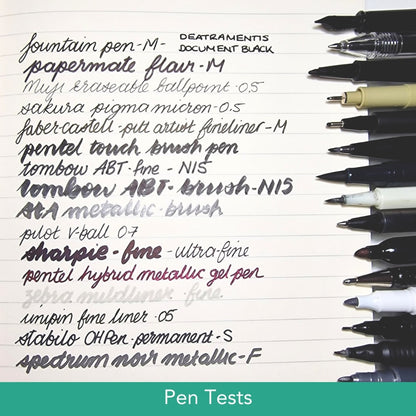 fountain pen-M- DEATRAMENTIS
DOCUMENT BLACK
papermate flair-M
Muji Eraseable ballpoint·0.5
sakura pigma micron-0.5
faber-castell-pitt artist fineliner-M
pentel touch brush pen
tombow ABT-fine-N15
tombow ABT-brush-N15
AtA metallic-brush
pilot V-ball 0.7
sharpie-fine-ultra-fine
pentel hybrid metallic gel pen
zebra mildliner·fine
unipin fine liner·05
stabilo OHPen-permanent-S
spectrum noir metallic-F
Pen Tests